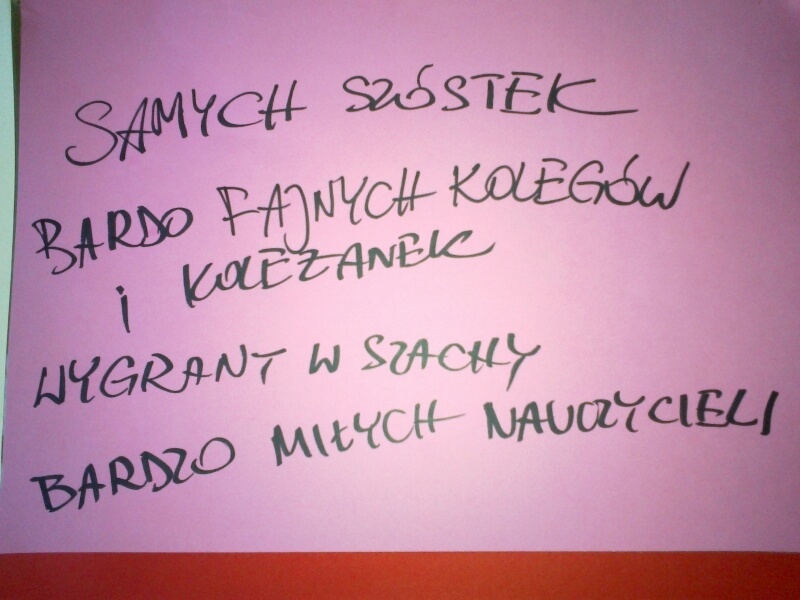 SAMYCH SZÓSTEK
BARDO FAJNYCH KOLEGÓW
i KOLEZANEK
WYGRANT W SZACHY
BARDZO MIŁYCH NAUCZYCIELI